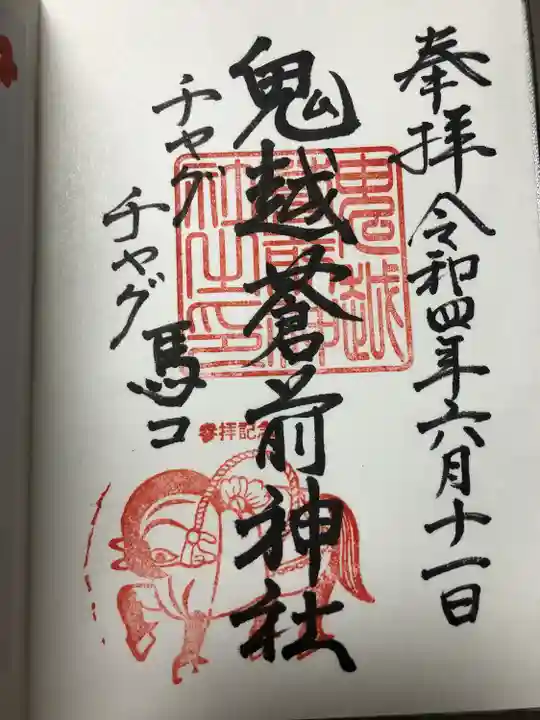 奉拝 令和四年六月十一日
鬼越蒼前神社
チャグ
チャグ
馬コ
鬼越蒼前神社之印
参拝記念